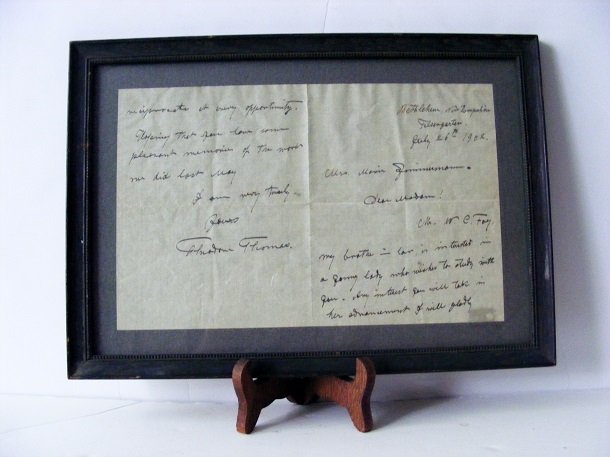 Bethlehem, New Hampshire
Felsengarten
July 26th 1902.
Mrs. Marie Zimmermann.
Dear Madam!
Mr. W C. Fay,
my brother in law is interested in
a young lady who wishes to study with
you. Any interest you will take in
her advancement I will gladly
reciprocate at every opportunity.
Hoping that you have some
pleasant memories of the work
we did last May
I am very truly
Yours
Theodore Thomas.